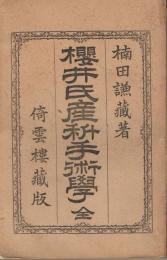 楠田謙藏著
櫻井氏産科手術學 全
倚雲樓藏版